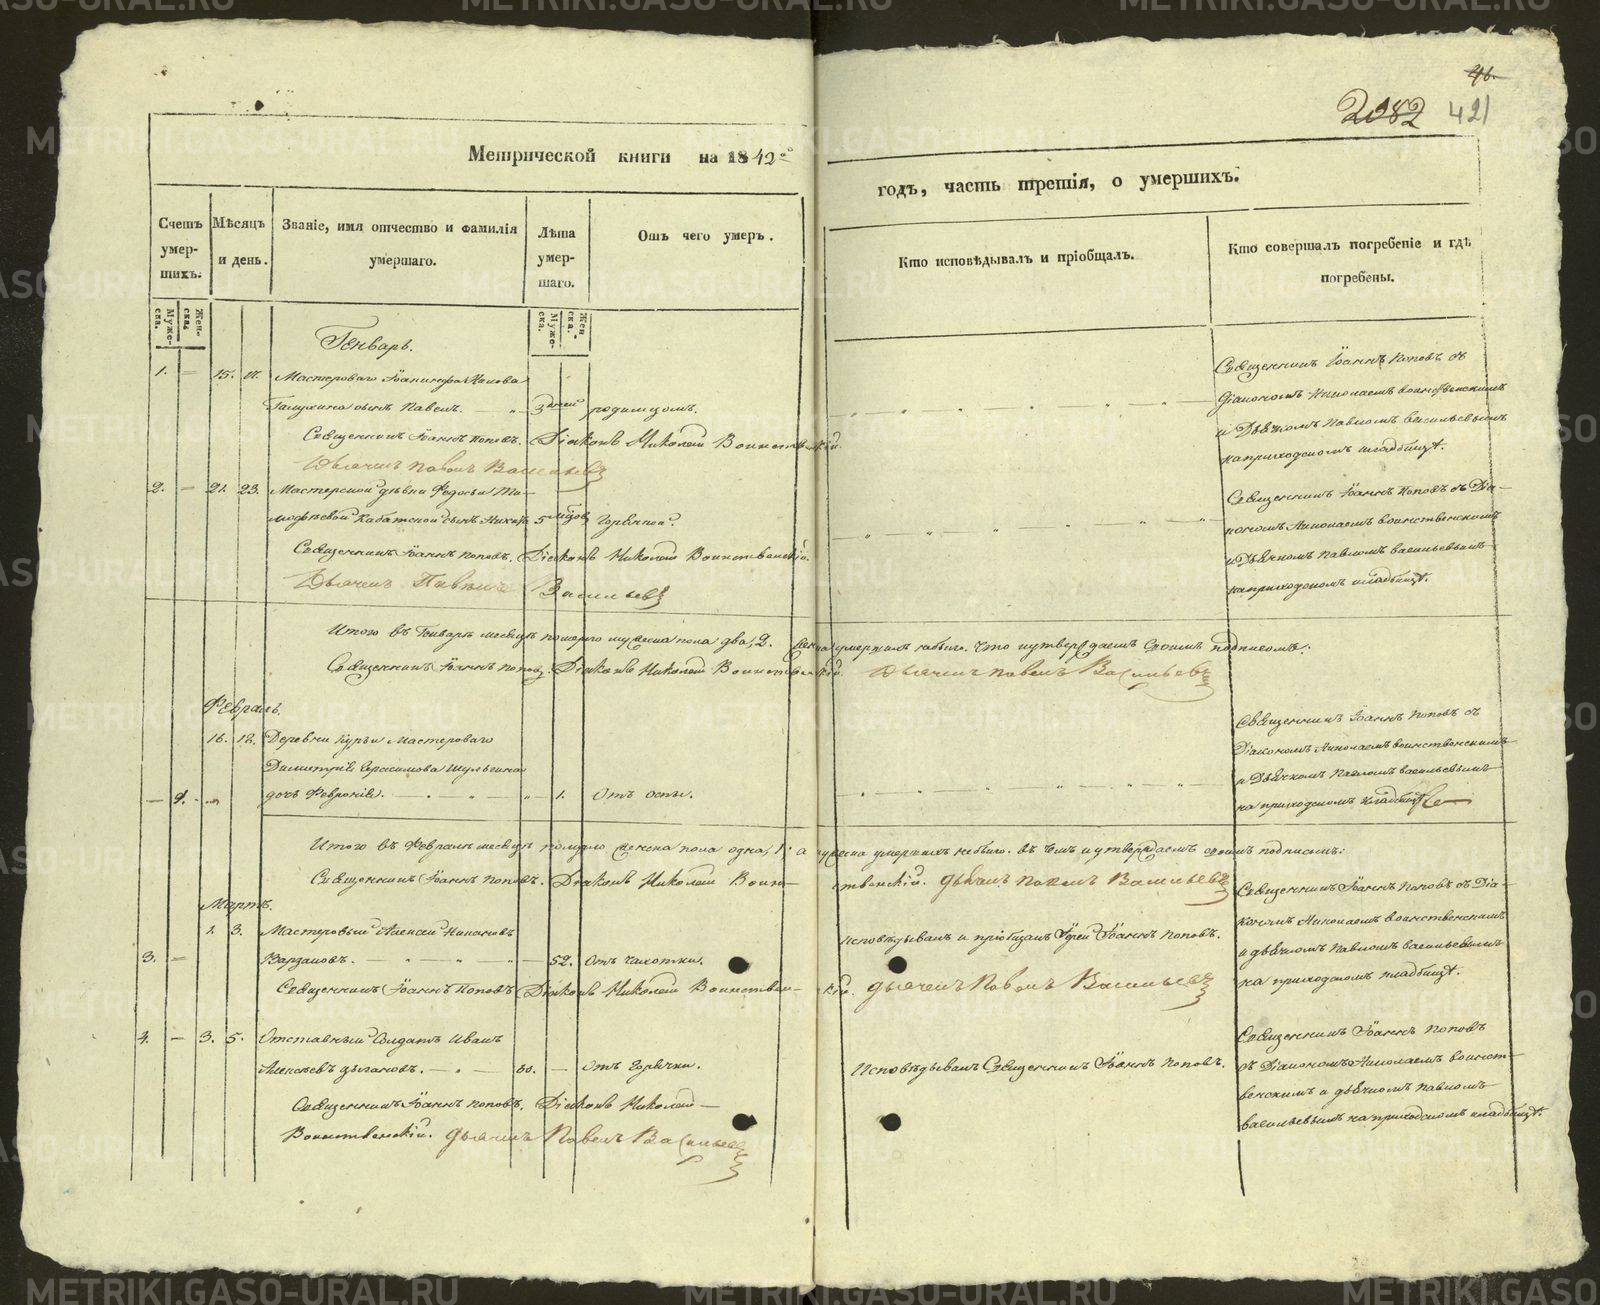 46.
2082 421
Метрической книги на 1842й
годъ, часть третія, о умершихъ.
Счетъ умер-шихъ.
Мѣсяцъ и день.
Званіе, имя отчество и фамилія умершаго.
Лѣта умер-шаго.
Отъ чего умеръ.
Кто исповѣдывалъ и пріобщалъ.
Кто совершалъ погребеніе и гдѣ погребены.
Муже-ска.
Жен-ска.
Муже-ска.
Жен-ска.
Генварь.
1. — 15. 17. Мастероваго
сынъ Павелъ. — „ 3 дней родимцомъ.
Священникъ Іоаннъ Поповъ. Діаконъ Николай Воинственскій.
Дьячекъ Павелъ Васильевъ
Священникъ Іоаннъ Поповъ съ
Діакономъ Николаемъ Воинственскимъ
и Дьячкомъ Павломъ Васильевымъ
на приходскомъ кладбищѣ.
2. — 21. 23. Мастерской дѣвки Федосьи Ти-
мофѣевой сынъ 5 мѣсяцов
Священникъ Іоаннъ Поповъ. Діаконъ Николай Воинственскій.
Дьячекъ Павелъ Васильевъ
Священникъ Іоаннъ Поповъ съ Діа-
кономъ Николаемъ Воинственскимъ
и Дьячкомъ Павломъ Васильевымъ
на приходскомъ кладбищѣ.
Итого въ Генварѣ месяцѣ померло мужеска пола два, 2. женска умершихъ небыло. Что и утверждаемъ своимъ подписомъ:
Священникъ Іоаннъ Поповъ. Діаконъ Николай Воинственскій. Дьячекъ Павелъ Васильевъ
Февраль.
16. 18. Деревни Мастероваго
Димитрія Герасимова Шульгина
— 1. дочь Февронія. — „ — „ 1. Отъ оспы.
Священникъ Іоаннъ Поповъ съ
Діакономъ Николаемъ Воинственскимъ
и Дьячкомъ Павломъ Васильевымъ
на приходскомъ кладбищѣ
Итого въ Февралѣ месяцѣ померло женска пола одна, 1; а мужеска умершихъ небыло. въ чемъ и утверждаемъ своимъ подписомъ:
Священникъ Іоаннъ Поповъ. Діаконъ Николай Воин- ственскій. Дьячекъ Павелъ Васильевъ
Мартъ.
1. 3. Мастеровый Алексей
3. — — „ — „ — 52. Отъ чахотки.
Священникъ Іоаннъ Поповъ Діаконъ Николай Воинствен- скій. Дьячекъ Павелъ Васильевъ
исповѣдывалъ и пріобщалъ Іерей Іоаннъ Поповъ.
Священникъ Іоаннъ Поповъ съ Діа-
кономъ Николаемъ Воинственскимъ
и дьячкомъ Павломъ Васильевымъ
на приходскомъ кладбищѣ.
4. — 3. 5. Отставный Солдатъ Иванъ
Алексѣевъ — „ — — Отъ Горячки.
Священникъ Іоаннъ Поповъ. Діаконъ Николай
Воинственскій. Дьячекъ Павелъ Васильевъ
Исповѣдывалъ Священникъ Іоаннъ Поповъ.
Священникъ Іоаннъ Поповъ
съ Діакономъ Николаемъ Воинст-
венскимъ и дьячкомъ Павломъ
Васильевымъ на приходскомъ кладбищѣ.
METRIKI.GASO-URAL.RU